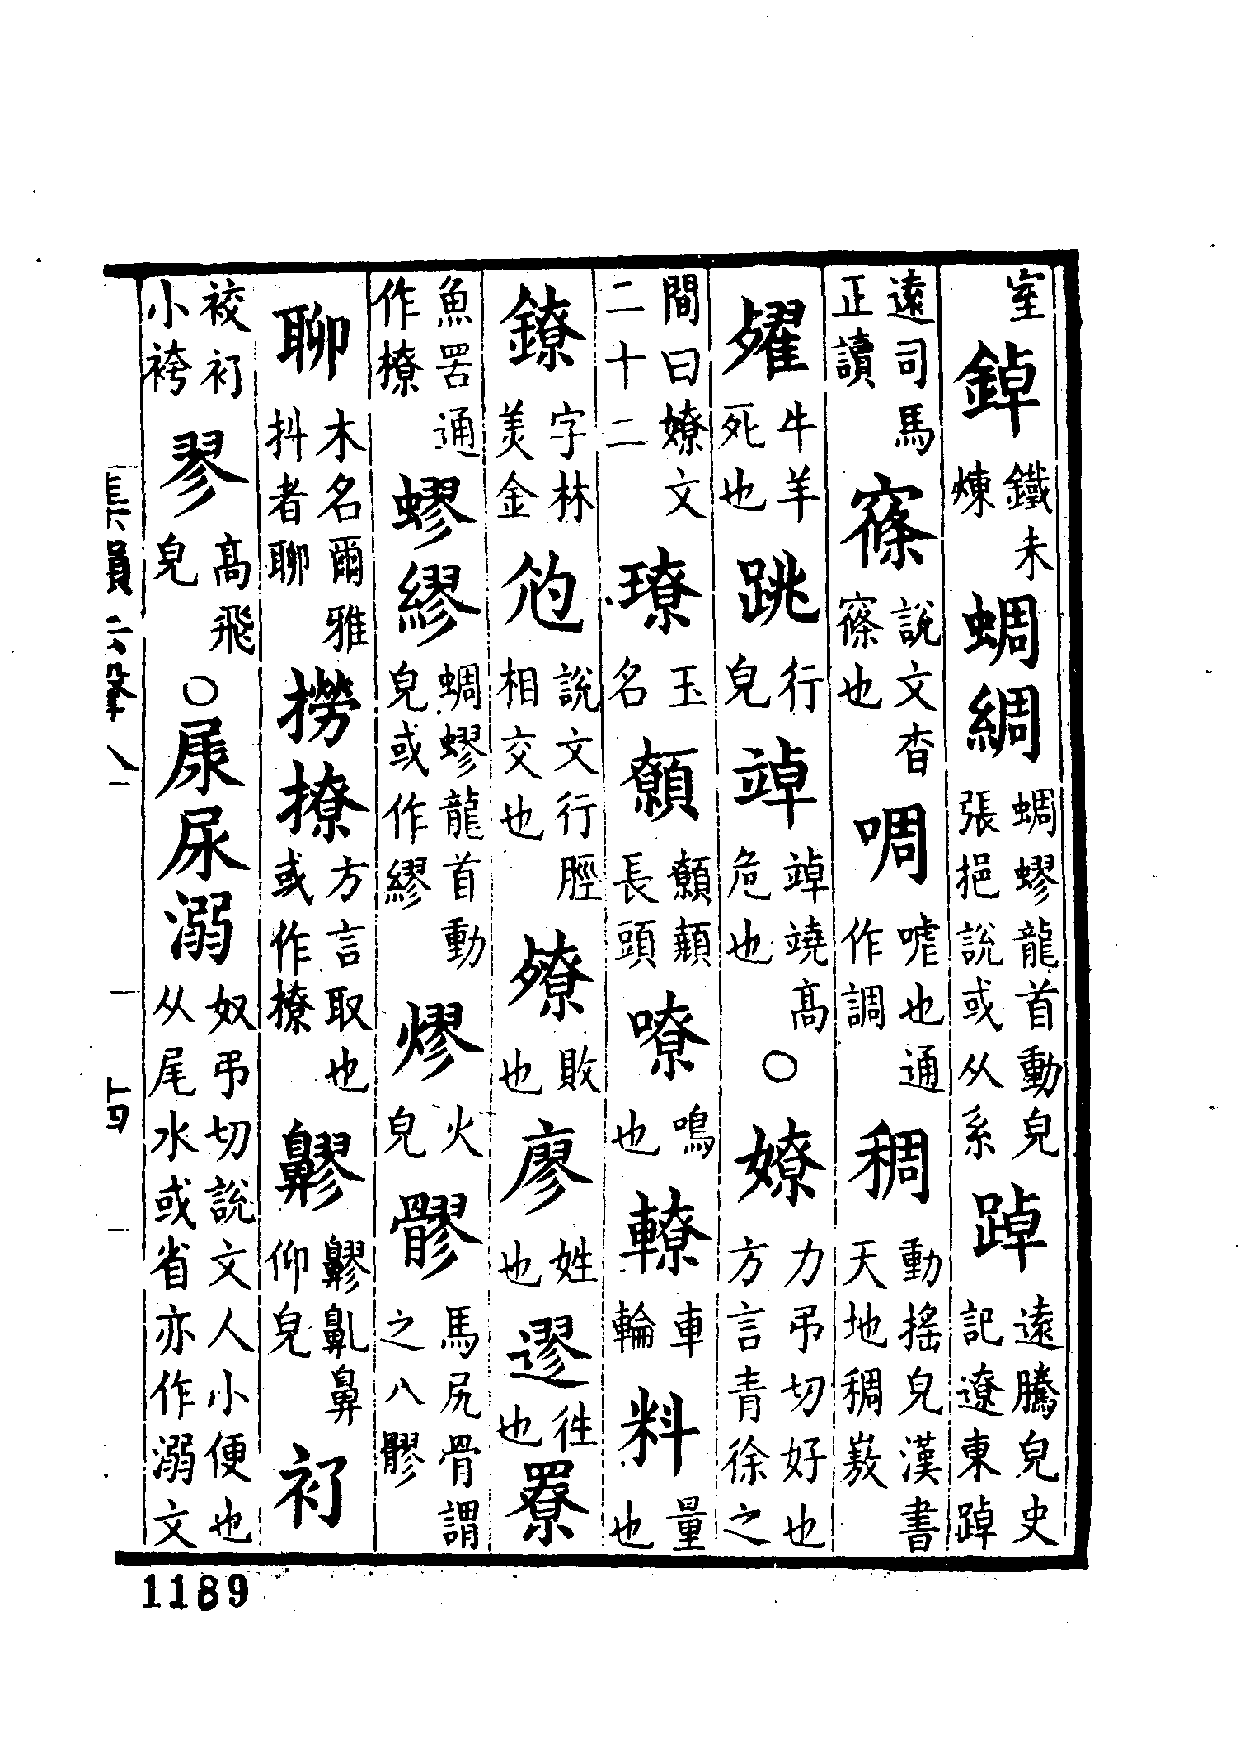 室銱鐵未煉蜩綢蜩蟉龍首動皃張挹說或从系踔遠騰皃史記遼東踔
遠司馬正讀窱說文杳窱也啁嘘也通作調稠動搖皃漢書天地稠㟼
𣨼牛羊死也跳行皃䇬䇬䜵高危也〇嫽力弔切好也方言青徐之
間曰嫽文二十二璙玉名顤顤顟長頭嘹鳴也轑車輪料量也
鐐字林美金尥說文行脛相交也㱫敗也廖姓也邆徃也㝋
魚罟通作橑蟉繆蜩蟉龍首動皃或作繆熮火皃髎馬尻骨謂之八髎
聊木名爾雅朻者聊撈撩方言取也或作撩䶎䶎鼽鼻仰皃衧
衱衧小袴翏高飛皃〇㞙尿溺奴弔切說文人小便也从尾水或省亦作溺文
集韻去聲八
十四
1189